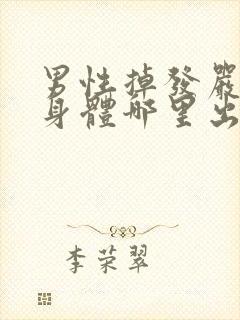 男性掉發嚴
身體哪里出
李荣翠